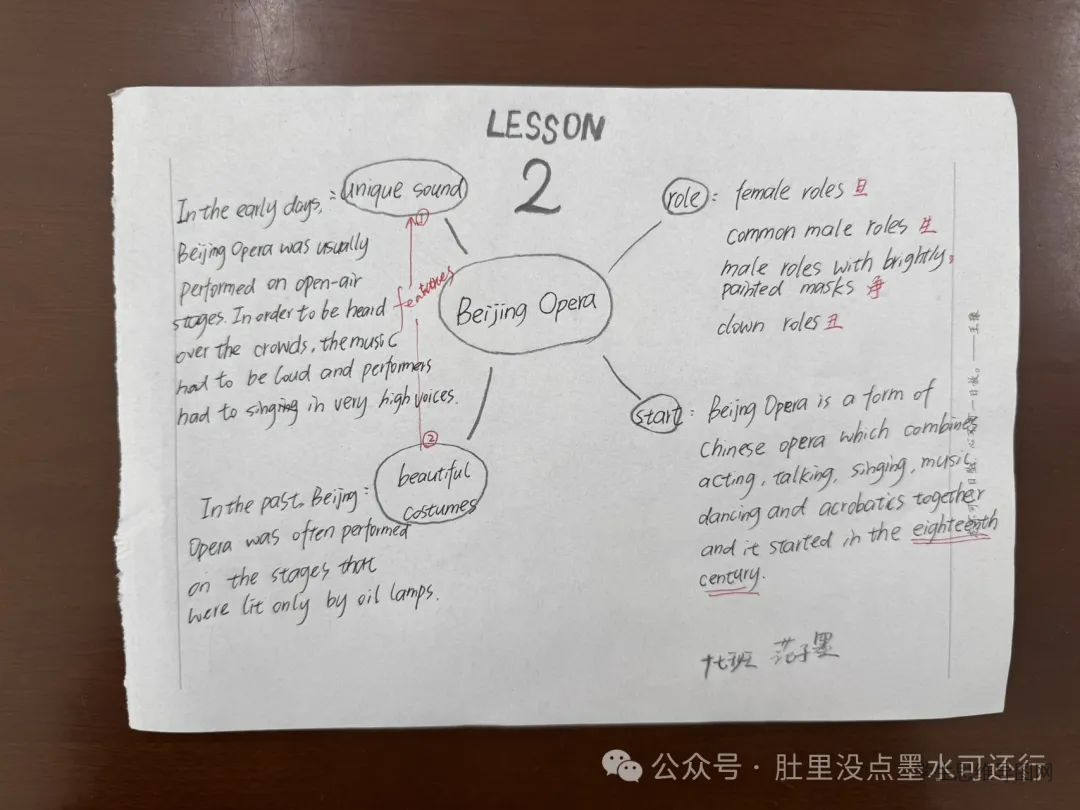 LESSON
2
unique sound
①
In the early days, :
Beijing Opera was usually
performed on open-air
stages. In order to be heard
over the crowds, the music
had to be loud and performers
had to singing in very high voices.
features
Beijing Opera
role : female roles 旦
common male roles 生
male roles with brightly
painted masks 净
clown roles 丑
start : Beijng Opera is a form of
Chinese opera which combines
acting, talking, singing, music
dancing and acrobatics together
and it started in the eighteenth
century.
②
beautiful
costumes
In the past, Beijng :
Opera was often performed
on the stages that
were lit only by oil lamps.
十七班 范子墨
一日 —— 王豫
公众号 · 肚里没点墨水可还行